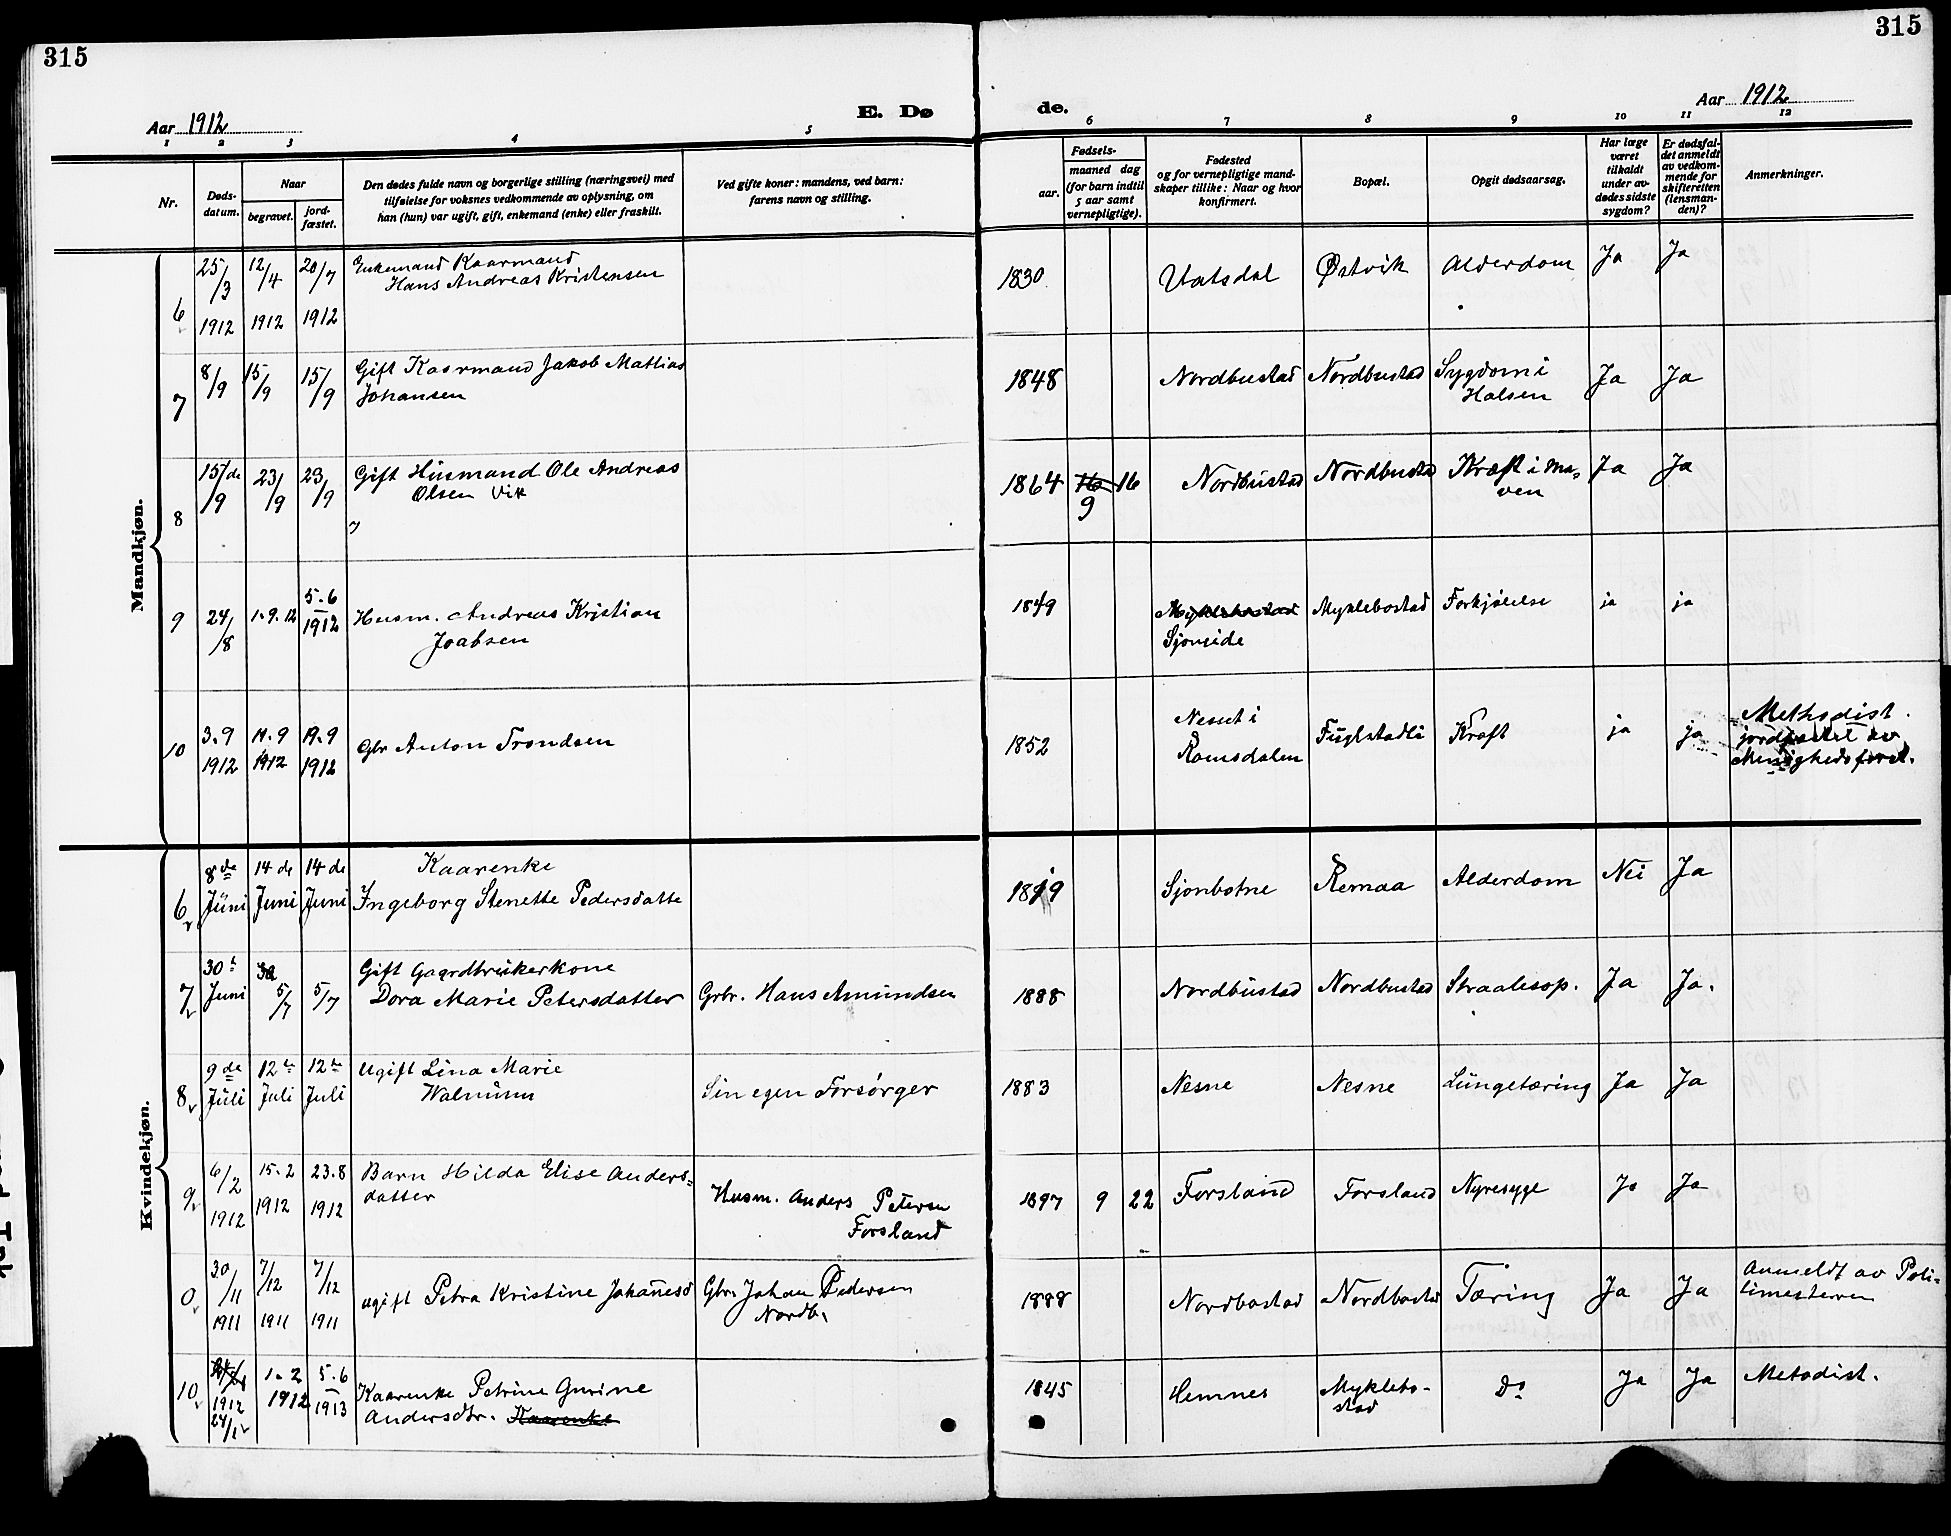 315
315
Aar 1912
E. Dø
de.
Aar 1912
1 2 3 4 5 6 7 8 9 10 11 12
Nr.
Døds-
datum.
Naar
begravet.
jord-
fæstet.
Den dødes fulde navn og borgerlige stilling (næringsvei) med
tilføielse for voksnes vedkommende av oplysning, om
han (hun) var ugift, gift, enkemand (enke) eller fraskilt.
Ved gifte koner: mandens, ved barn:
farens navn og stilling.
Fødsels-
aar.
maaned dag
(for barn indtil
5 aar samt
vernepligtige).
Fødested
og for vernepligtige mand-
skaper tillike: Naar og hvor
konfirmert.
Bopæl.
Opgit dødsaarsag.
Har læge
været
tilkaldt
under av-
dødes sidste
sygdom?
Er dødsfal-
det anmeldt
av vedkom-
mende for
skifteretten
(lensman-
den)?
Anmerkninger.
Mandkjøn.
6 25/3 1912 12/4 1912 20/7 1912
Enkemand Kaarmand
Hans Andreas Kristensen
1830 Utatsdal Østvik Alderdom Ja Ja
7 8/9 15/9 15/9
Gift Kaarmand Jakob Mathias
Johansen
1848 Nordbustad Nordbustad Sygdom i
Halsen
Ja Ja
8 15/de 9 23/9 23/9
Gift Husmand Ole Andreas
Olsen Vik
1864 16 9 16 Nordbustad Nordbustad Kræft i Ma-
ven
Ja Ja
9 24/8 1.9.12 5.6 1912
Husm. Andreas Kristian
Joabsen
1849 Myklebostad
Sjonside
Myklebostad Forkjølelse ja ja
10 3.9 1912 11.9 1912 19.9 1912
Gbr Anton Trondsen
1852 Nesset i
Romsdalen
Fuglstadli Kræft ja ja
Methodist.
jordfæstet av
Menighedsforst.
Kvindekjøn.
6 8de Juni 14 de Juni 14 de Juni
Kaarenke
Ingeborg Stenette Pedersdatte
1819 Sjonbotne Remaa Alderdom Nei Ja
7 30 Juni 5/7 5/7
Gift Gaardbrukerkone
Dora Marie Petersdatter
Grbr. Hans Amundsen
1888 Nordbustad Nordbustad Straalesop. Ja Ja.
8 9 de Juli 12 Juli 12 Juli
Ugift Lina Marie
Walnum
Sin egen Forsørger
1883 Nesne Nesne Lungetæring Ja Ja
9 6/2 1912 15.2 1912 23.8 1912
Barn Hilda Elise Anders-
datter
Husm. Anders Petersen
Forsland
1897 9 22 Forsland Forsland Nyresyge Ja Ja
0 30/11 1911 7/12 1911 7/12 1911
ugift Petra Kristine Johanesd
Gbr. Johan Pedersen
Nordb.
1888 Nordbostad Nordbostad Tæring Ja Ja
Anmeldt av Poli-
timesteren
10 1912 24/1 1.2 1912 5.6 1913
Kaarenke Petrine Gurine
Andersdtr. Kaarenke
1845 Hemnes Myklebo-
stad
Do Ja Ja Metodist.